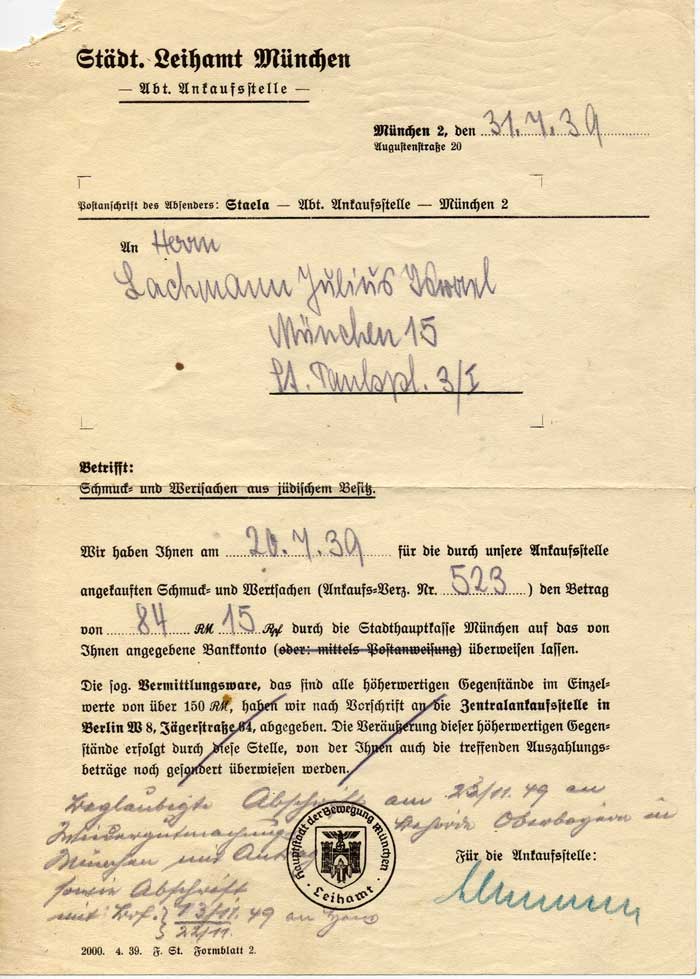 Städt. Leihamt München
— Abt. Ankaufsstelle —
München 2, den 31.7.39
Augustenstraße 20
Postanschrift des Absenders: Staela — Abt. Ankaufsstelle — München 2
An Herrn
Lachmann Julius Israel
München 15
St. Paulspl. 3/I
Betrifft:
Schmuck- und Wertsachen aus jüdischem Besitz.
Wir haben Ihnen am 20.7.39 für die durch unsere Ankaufsstelle
angekauften Schmuck- und Wertsachen (Ankaufs-Verz. Nr. 523) den Betrag
von 84 RM 15 Rpf durch die Stadthauptkasse München auf das von
Ihnen angegebene Bankkonto (oder: mittels Postanweisung) überweisen lassen.
Die sog. Vermittlungsware, das sind alle höherwertigen Gegenstände im Einzel-
werte von über 150 RM, haben wir nach Vorschrift an die Zentralankaufsstelle in
Berlin W 8, Jägerstraße 64, abgegeben. Die Veräußerung dieser höherwertigen Gegen-
stände erfolgt durch diese Stelle, von der Ihnen auch die treffenden Auszahlungs-
beträge noch gesondert überwiesen werden.
Beglaubigte Abschrift am 23/11.49 an
Wiedergutmachungs Behörde Oberbayern in
München mit
sowie Abschrift
mit 13/11.49 an
22/11.
Hauptstadt der Bewegung München
· Leihamt ·
Für die Ankaufsstelle:
2000. 4. 39. F. St. Formblatt 2.